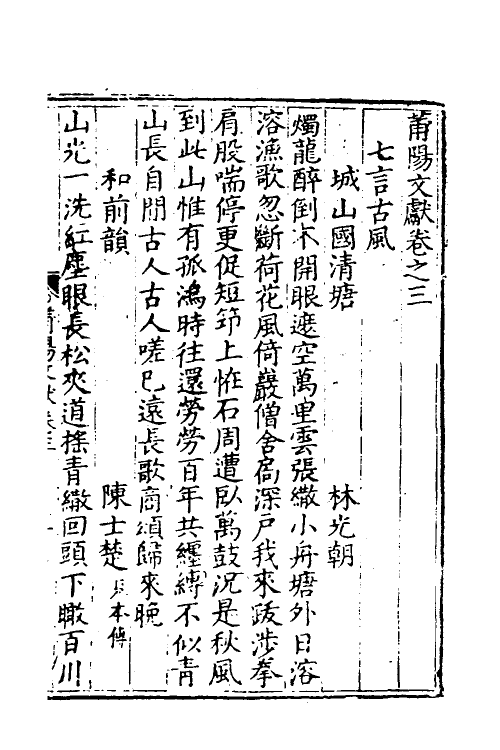 莆陽文獻卷之三
七言古風
城山國清塘 林光朝
燭龍醉倒不開眼遮空萬里雲張繖小舟塘外日溶
溶漁歌忽斷荷花風倚巖僧舍扃深戶我來跋涉拳
肩股喘停更促短笻上恠石周遭臥萬鼓況是秋風
到此山惟有孤鴻時往還勞勞百年共纏縛不似青
山長自閒古人古人嗟已遠長歌商頌歸來晚
和前韻 陳士楚見本傳
山光一洗紅塵眼長松夾道搖青繖回頭下瞰百川